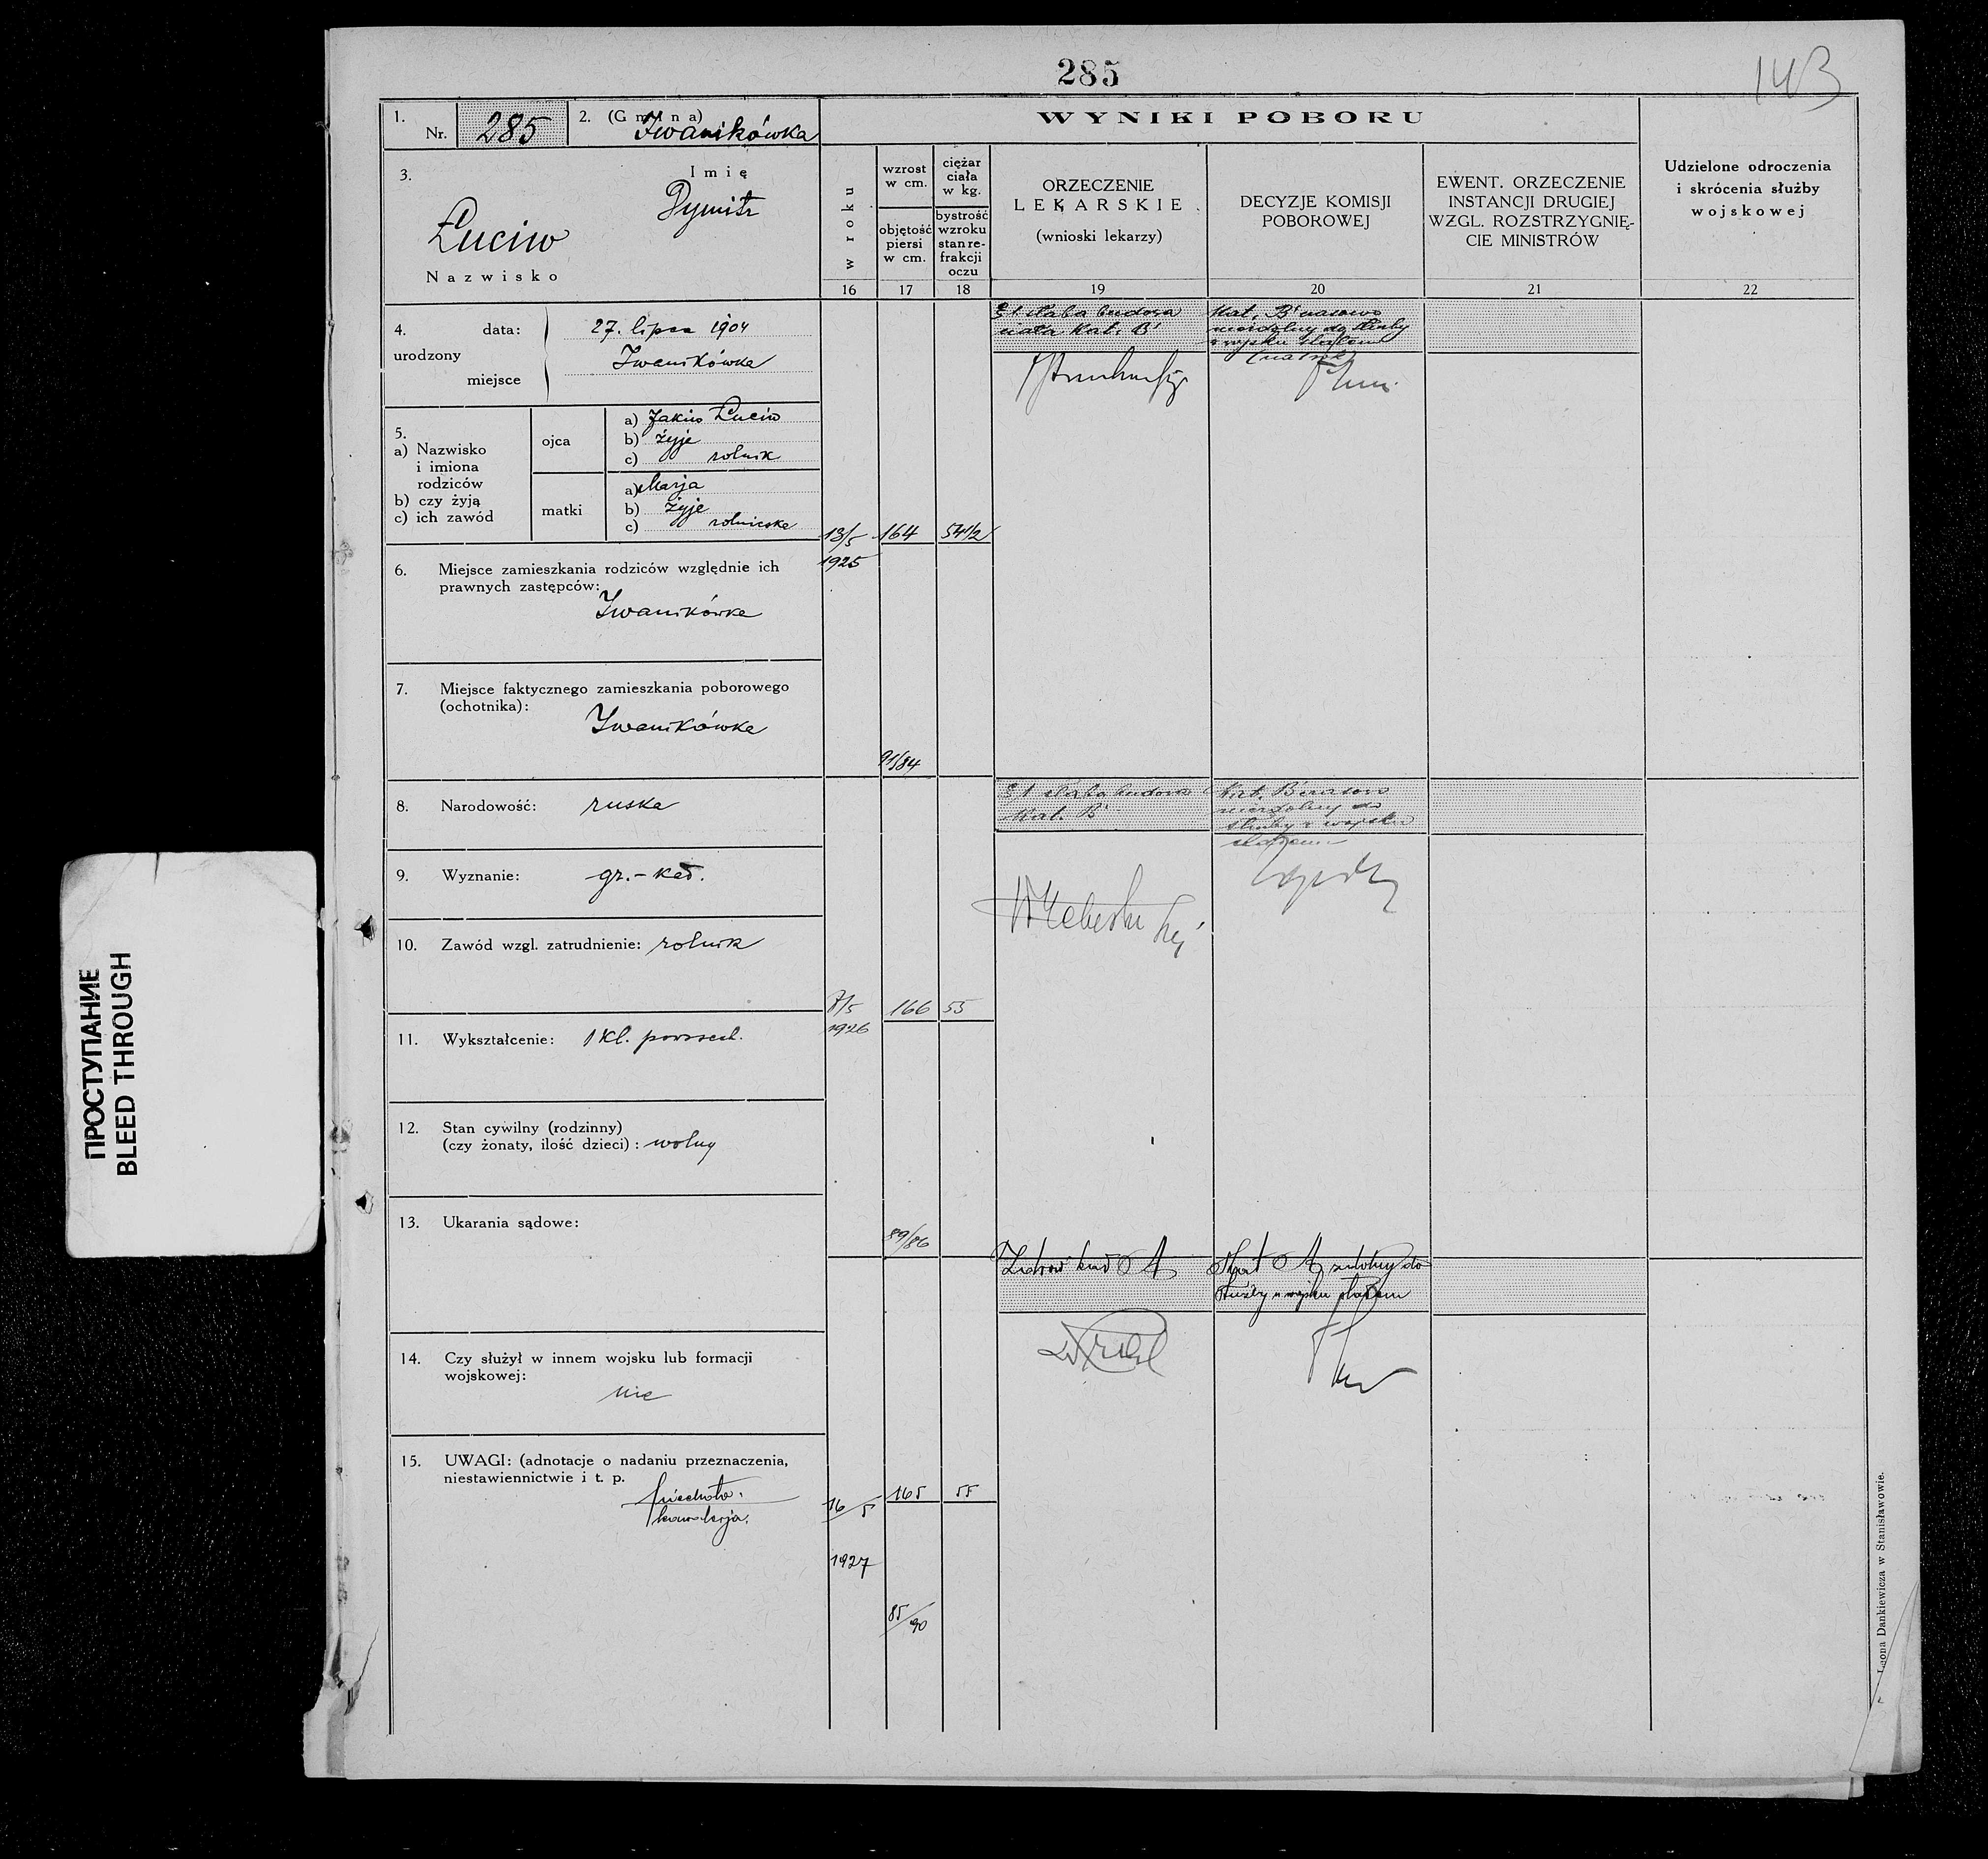 285
143
1.
Nr. 285
2. (Gmina)
Iwanikówka
WYNIKI POBORU
3.
Imię
Dymitr
Łuciw
Nazwisko
w roku
wzrost
w cm.
objętość
piersi
w cm.
ciężar
ciała
w kg.
bystrość
wzroku
stan re-
frakcji
oczu
ORZECZENIE
LEKARSKIE
(wnioski lekarzy)
DECYZJE KOMISJI
POBOROWEJ
EWENT. ORZECZENIE
INSTANCJI DRUGIEJ
WZGL. ROZSTRZYGNIĘ-
CIE MINISTRÓW
Udzielone odroczenia
i skrócenia służby
wojskowej
16
17
18
19
20
21
22
4.
urodzony
data: 27. lipca 1904
miejsce Iwanikówka
5.
a) Nazwisko
i imiona
rodziców
b) czy żyją
c) ich zawód
ojca
a) Jakiw Łuciw
b) żyje
c) rolnik
matki
a) Marja
b) żyje
c) rolniczka
6. Miejsce zamieszkania rodziców względnie ich
prawnych zastępców:
Iwanikówka
7. Miejsce faktycznego zamieszkania poborowego
(ochotnika):
Iwanikówka
8. Narodowość: ruska
9. Wyznanie: gr.-kat.
10. Zawód wzgl. zatrudnienie: rolnik
11. Wykształcenie: 1 kl. powszech.
12. Stan cywilny (rodzinny)
(czy żonaty, ilość dzieci): wolny
13. Ukarania sądowe:
14. Czy służył w innem wojsku lub formacji
wojskowej:
nie
15. UWAGI: (adnotacje o nadaniu przeznaczenia,
niestawiennictwie i t. p.
piechota.
kawalerja.
13/5
1925
164
54 1/2
91/84
§ 1 słaba budowa
ciała Kat. B
Kat. B czasowo
niezdolny do służby
w wojsku stałem
7/5
1926
166
55
89/86
§ 1 słaba budowa
Kat. B
Kat. B czasowo
niezdolny do
służby w wojsku
stałem
16/5
1927
165
55
85/90
Zdrów A
Kat A zdolny do
służby w wojsku stałem
Leona Dankiewicza w Stanisławowie.
ПРОСТУПАНИЕ
BLEED THROUGH